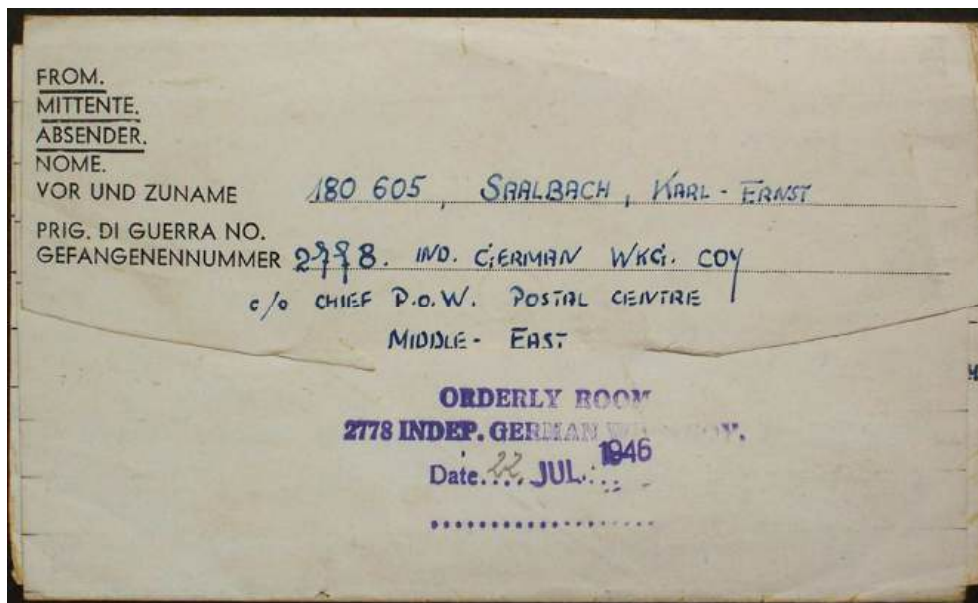 FROM.
MITTENTE.
ABSENDER.
NOME.
VOR UND ZUNAME 180 605, SAALBACH, KARL-ERNST
PRIG. DI GUERRA NO.
GEFANGENENNUMMER 2778. IND. GERMAN WKG. COY
c/o CHIEF P.O.W. POSTAL CENTRE
MIDDLE-EAST
ORDERLY ROOM
2778 INDEP. GERMAN
Date.... 22 JUL. 1946